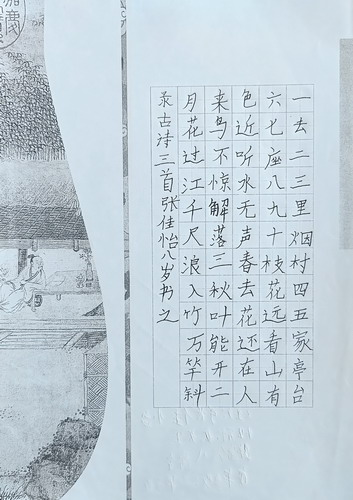 一去二三里烟村四五家亭台
六七座八九十枝花远看山有
色近听水无声春去花还在人
来鸟不惊解落三秋叶能开二
月花过江千尺浪入竹万竿斜
录古诗三首张佳怡八岁书之